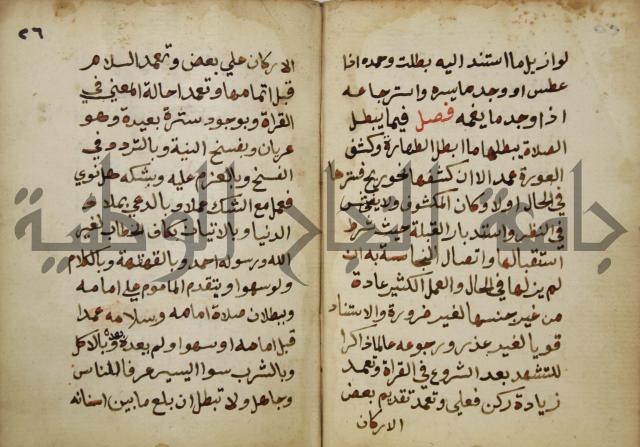 لو ازيل ما استند اليه بطلت وحمده اذا
عطس او وجد ما يسره واسترجاعه
اذا وجد ما يغمه فصل فيما يبطل
الصلاة يبطلها ما ابطل الطهارة وكشف
العورة عمدا لا ان كشفها نحو ريح فسترها
في الحال اولا وكان المكشوف ولا يفحش
في النظر واستدبار القبلة حيث شرط
استقبالها واتصال النجاسة به ان
لم يزلها في الحال والعمل الكثير عادة
من غير جنسها لغير ضرورة والاستناد
قويا لغير عذر ورجوعه عالما ذاكرا
للتشهد بعد الشروع في القراة وتعمد
زيادة ركن فعلي وتعمد تقديم بعض
الاركان
٢٦
الاركان علي بعض وتعمد السلام
قبل اتمامها وتعمد احالة المعني في
القراة وبوجود سترة بعيدة وهو
عريان وبفسخ النية وبالتردد في
الفسخ وبالعزم عليه وبشكه هل نوي
فعمل مع الشك عملا وبالدعي بملاذ
الدنيا وبالاتيان بكاف الخطاب لغير
الله ورسوله احمد وبالقهقهة وبالكلام
ولو سهوا وبتقدم الماموم علي امامه
وببطلان صلاة امامه وسلامه عمدا
قبل امامه او سهوا ولم يعده بعده وبالاكل
وبالشرب سوا اليسير عرفا للناس
وجاهل ولا تبطل ان بلع ما بين اسنانه
جامعة النجاح الوطنية